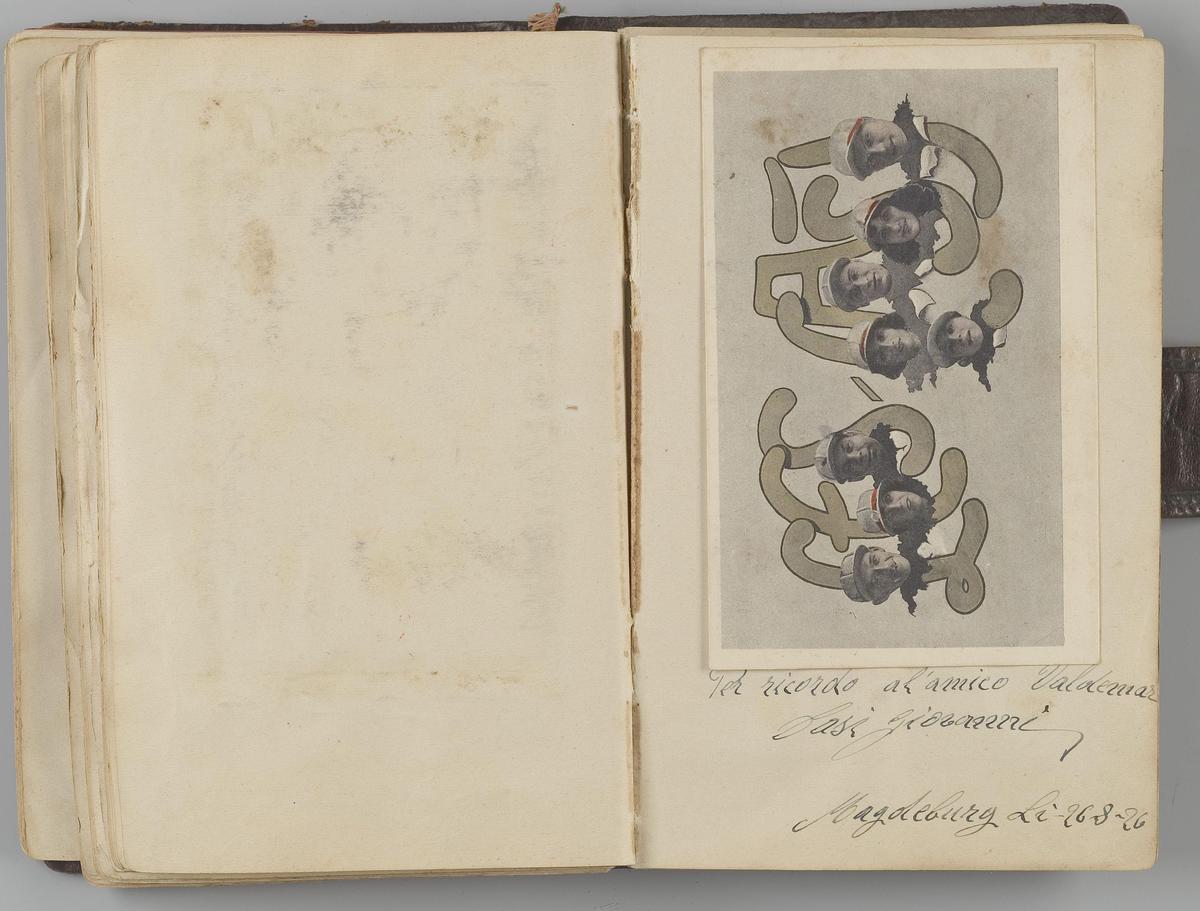 Per ricordo al'amico Valdemar
Lasi Giovanni
Magdeburg Li-26-8-26